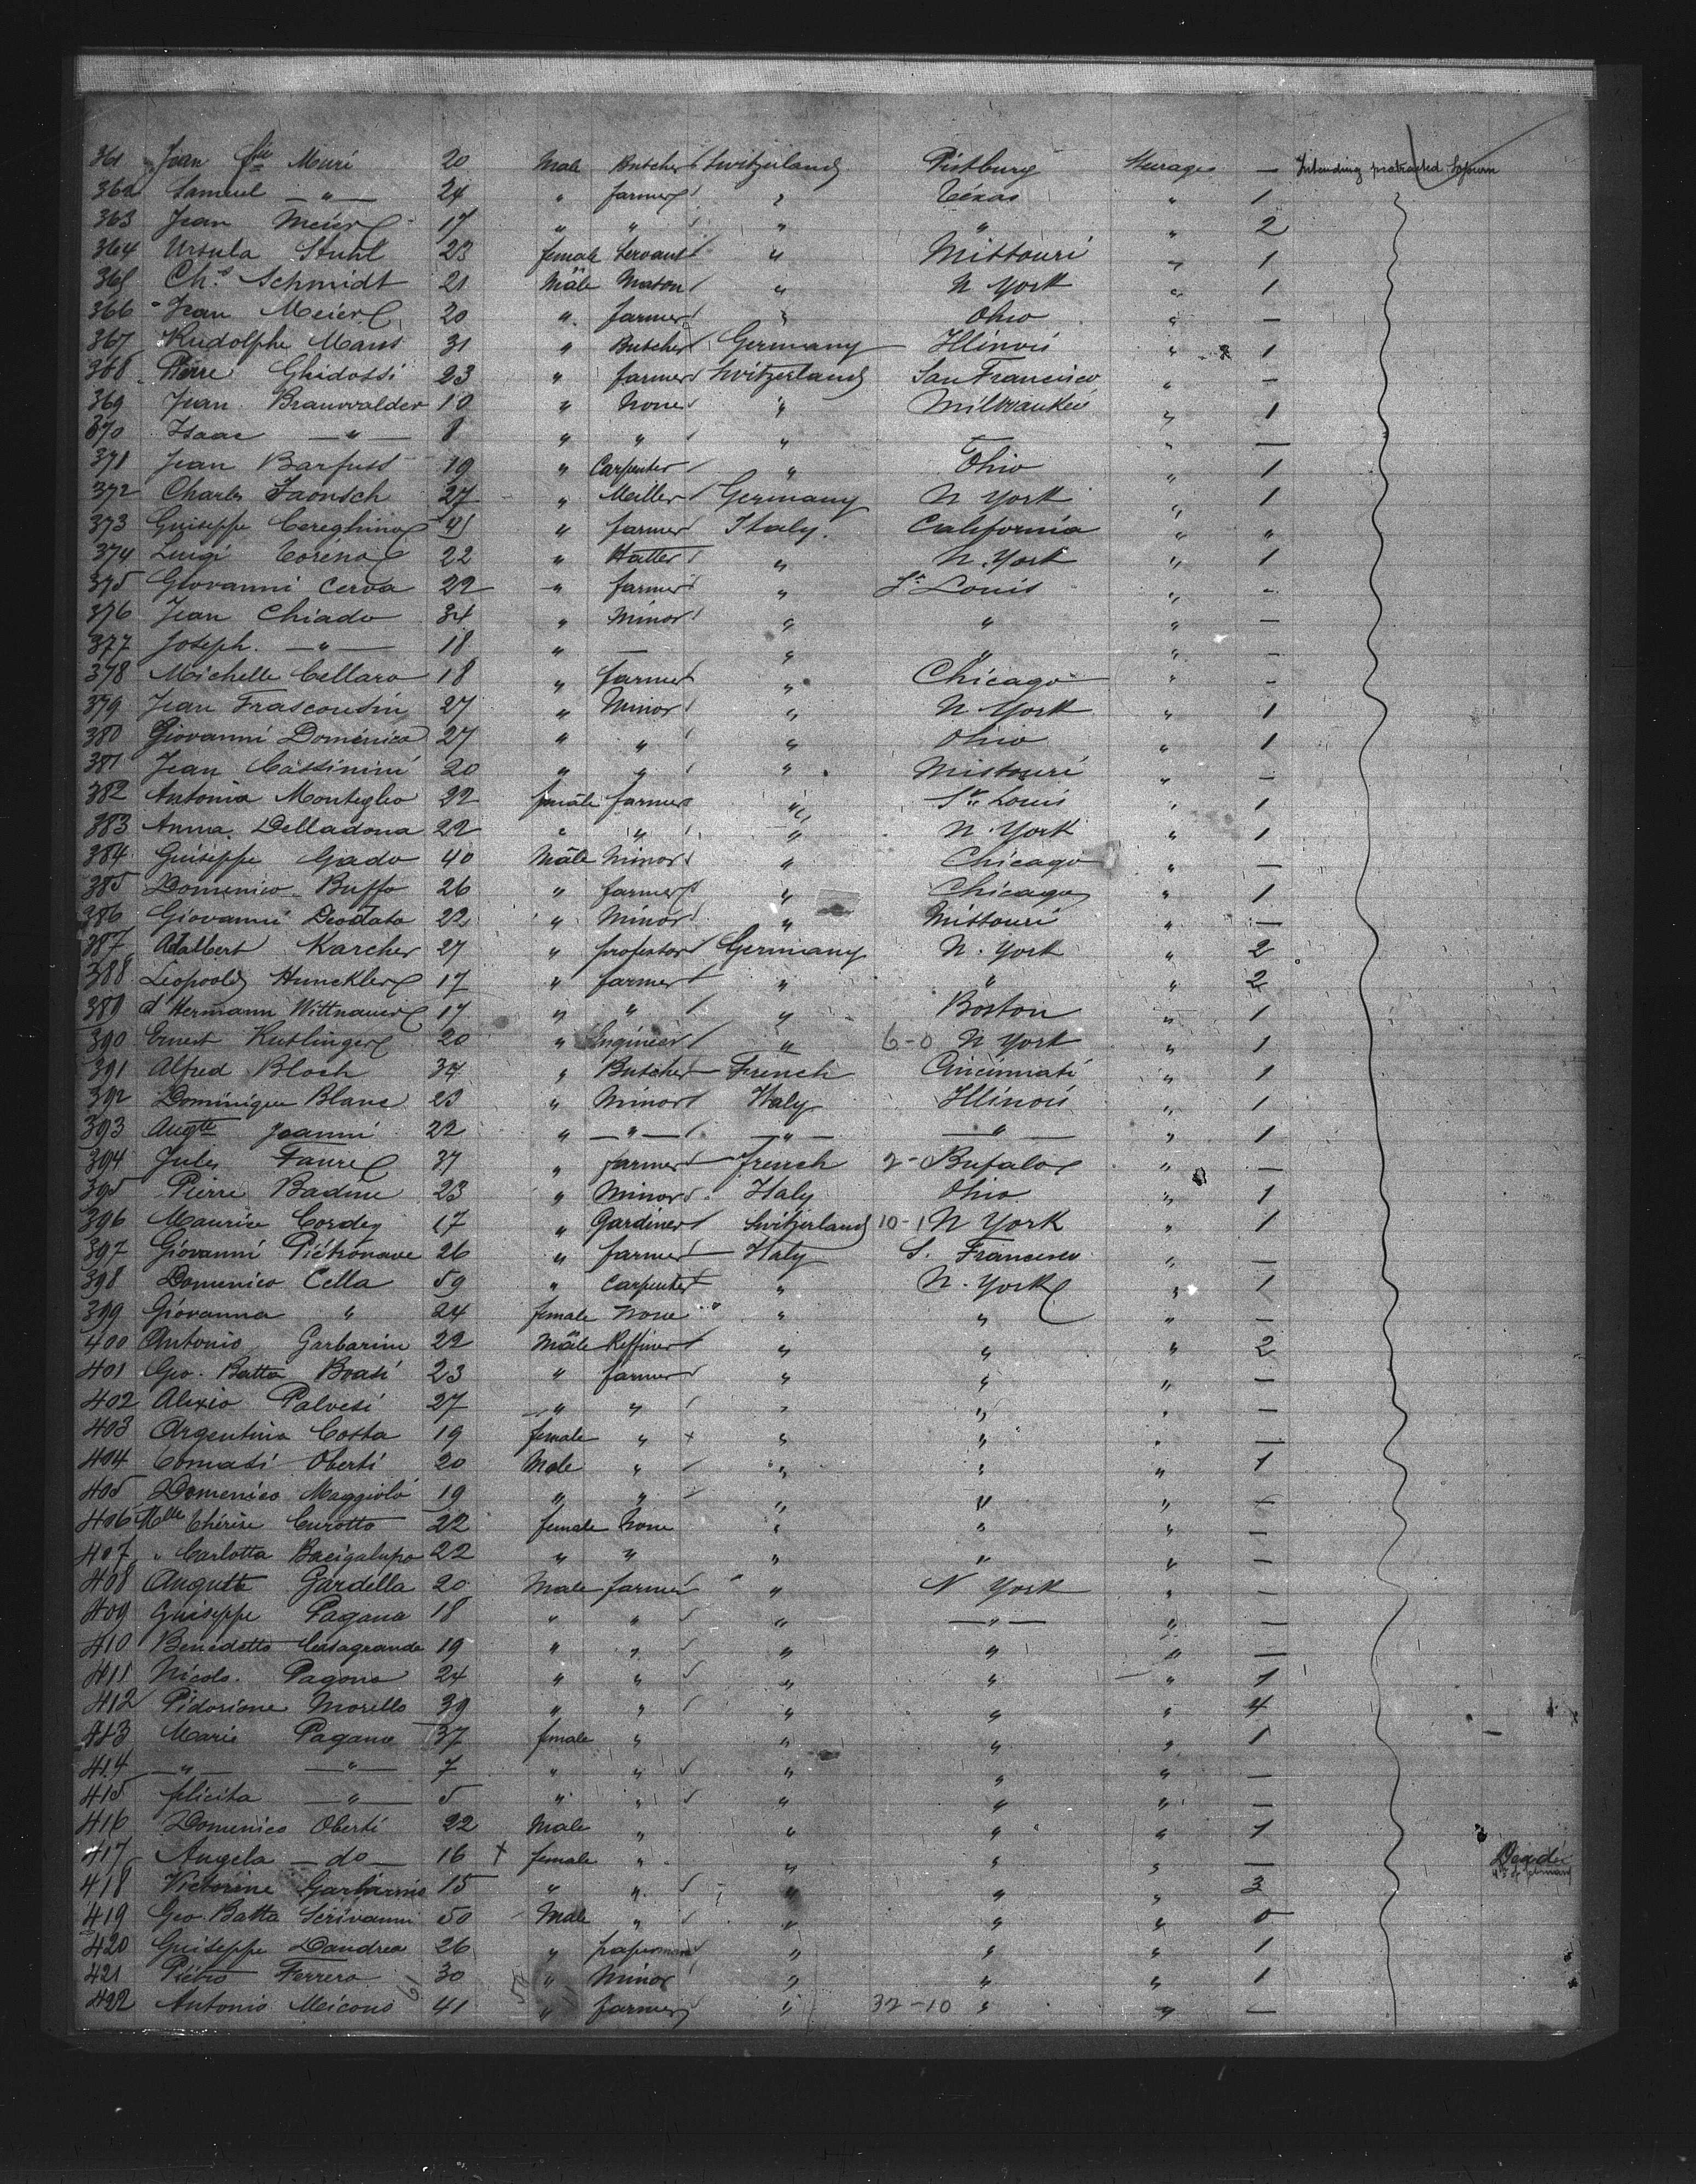 361 Jean Bte Muri 20 Male Butcher Switzerland Pistburg Sterages — Intending protracted Sojourn
362 Samuel — " — 24 " farmer " Texas " 1
363 Jean Meier 17 " " " " " 2
364 Ursula Stuhl 23 female Servant " Missouri " 1
365 Ch.s Schmidt 21 Male Mason " N York " 1
366 Jean Meier 20 " farmer " Ohio " —
367 Rudolphe Mans 31 " Butcher Germany Illinois " 1
368 Pierre Ghidossi 23 " farmer Switzerland San Francisco " —
369 Jean Braunwalder 10 " None " Milwaukee " 1
370 Isaac — " — 8 " " " — " —
371 Jean Barfuss 19 " Carpenter " Ohio " 1
372 Charles 27 " Meiller Germany N York " 1
373 Guiseppe Cereghino 41 " farmer Italy. California " "
374 Luigi Torino 22 " Hatter " N. York " 1
375 Giovanni Cerva 22 " farmer " St Louis " -
376 Jean Chiado 34 " Minor " " " —
377 Joseph. — " — 18 " — " " " -
378 Michelle Cellaro 18 " farmer " Chicago " -
379 Jean 27 " Minor " N York " 1
380 Giovanni Domenico 27 " " " Ohio " 1
381 Jean Cassinini 20 " " " Missouri " -
382 Antonia Monteglio 22 female farmer " St Louis " 1
383 Anna Delladona 22 " " " N. York " 1
384 Guiseppe Gado 40 Male Minor " Chicago " —
385 Domenico Buffo 26 " farmer " Chicago " 1
386 Giovanni Diodato 22 " Minor " Missouri " —
387 Adalbert Karcher 27 " professor Germany N. York " 2
388 Leopold Hunckler 17 " farmer " " " 2
389 d' Hermann Wittnauer 17 " " " Boston " 1
390 Ernest Kutlinger 20 " Engineer " 6-0 N York " 1
391 Alfred Bloch 34 " Butcher French Cincinnati " 1
392 Dominique Blanc 23 " Minor Italy Illinois " 1
393 Augte Joanni 22 " — " — — " — — " — " 1
394 Jules Faure 37 " farmer French 2- Bufalo " —
395 Pierre Badine 23 " Minor Italy Ohio " 1
396 Maurice Cordey 17 " Gardiner Switzerland 10-1 N York " 1
397 Giovanni Piétronave 26 " farmer Italy S. Francisco " —
398 Domenico Cella 59 " Carpenter " N. York " 1
399 Giovanna " 24 female None " " " —
400 Antonio Garbarini 22 Male Reffiner " " " 2
401 Geo. Batta Boasi 23 " farmer " " " —
402 Alexio Palvesi 27 " " " " " —
403 Argentina Costa 19 female " + " " " —
404 Tomasi Oberti 20 Male " " " " 1
405 Domenico Maggiolo 19 " " " " " —
406 Melle Thérise Curotto 22 female None " " " —
407 " Carlotta Bacigalupo 22 " " " " " —
408 Auguste Gardella 20 Male farmer " N York " —
409 Guiseppe Pagano 18 " " " — " — " —
410 Benedetto Casagrande 19 " " " " " —
411 Nicolo. Pagono 24 " " " " " 1
412 Pidorione Morello 39 " " " " " 4
413 Marie Pagano 37 female " " " " 1
414 — " — — " — 7 " " " " " —
415 felicita — " — 5 " " " " " —
416 Domenico Oberti 22 Male " " " " 1
417 Angela — do — 16 + female " " " " — Dead
418 Victorine Garbarino 15 " " " " " 3
419 Geo. Batta Scrivanni 50 Male " " " " 0
420 Guiseppe Dandrea 26 " " " " 1
421 Piétro Ferrero 30 " Minor " " " 1
422 Antonio Meicono 41 " farmer " 32-10 " " —